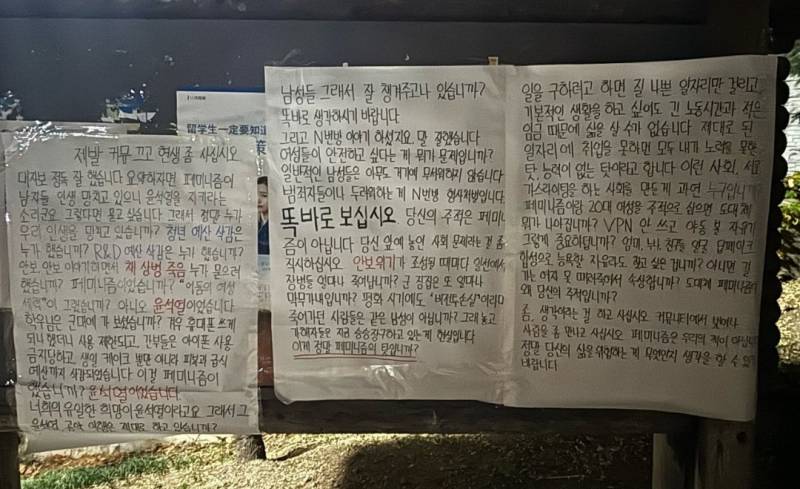 제발 커뮤 끄고 현생 좀 사십시오
대자보 정독 잘 했습니다 요약하자면 페미니즘이
남자들 인생 망치고 있으니 윤석열을 지키라는
소리군요 그렇다면 묻고 싶습니다 그래서 정말 누가
우리 인생을 망치고 있습니까? 청년 예산 삭감은
누가 했습니까? R&D 예산 삭감은 누가 했습니까?
안보 안보 이야기하면서 채 상병 죽음 누가 몰으려
했습니까? 페미니즘이었습니까? "이동의 여성
세력"이 그랬습니까? 아니오 윤석열이었습니다
학우님은 군대에 가 보셨습니까? 겨우 휴대폰 쓰게
되나 했더니 사용 제한되고, 간부들은 아이폰 사용
금지당하고 생일 케이크 뿐만 아니라 피복과 급식
예산까지 삭감되었습니다 이걸 페미니즘이
했습니까? 윤석열이었습니다
너희의 유일한 희망이 윤석열이라고요 그래서 그
윤석열 공약 이행은 제대로 하고 있습니까?
留学生一定要知道
남성들 그래서 잘 챙겨주고나 있습니까?
똑바로 생각하시기 바랍니다
그리고 N번방 이야기 하셨지요. 말 잘했습니다
여성들이 안전하고 싶다는 게 뭐가 문제입니까?
일반적인 남성들은 아무도 거기에 무서워하지 않습니다
범죄자들이나 두려워하는 게 N번방 형사처벌입니다.
똑바로 보십시오 당신의 주적은 페미니
즘이 아닙니다 당신 앞에 놓인 사회 문제라는 걸 좀
직시하십시오 안보위기가 조성될 때마다 일선에서
장병들 얼마나 죽어납니까? 군 징집은 또 얼마나
마구가내입니까? 평화 시기에도 '비전투손실'이라며
죽어가던 사람들은 같은 남성이 아닙니까? 그래 놓고
가해자들은 지금 승승장구하고 있는게 현실입니다
이게 정말 페미니즘이 탓입니까?
일을 구하려고 하면 질 나쁜 일자리만 걸리고
기본적인 생활을 하고 싶어도 긴 노동시간과 적은
임금 때문에 삶을 살 수가 없습니다 제대로 된
일자리에 취업을 못하면 모두 내가 노력을 못한
탓, 능력이 없는 탓이라고 합니다 이런 사회, 서로
가스라이팅을 하는 사회를 만든게 과연 누구입니까?
페미니즘이랑 20대 여성을 주적으로 삼으면 도대체
뭐가 나아집니까? VPN 안 쓰고 야동 볼 자유가
그렇게 중요하답니까? 엄마, 누나, 친구들 얼굴 딥페이크
합성으로 능욕할 자유라도 찾고 싶은 겁니까? 아니면 길
가는 여자 못 때려줘서 속상합니까? 도대체 페미니즘이
왜 당신의 주적입니까?
좀, 생각이라는 걸 하고 사십시오 커뮤니티에서 벗어나
사람을 좀 만나고 사십시오 페미니즘은 우리의 적이 아닙니다
정말 당신의 삶을 위협하는 게 무엇인지 생각을 할 수 있기
바랍니다